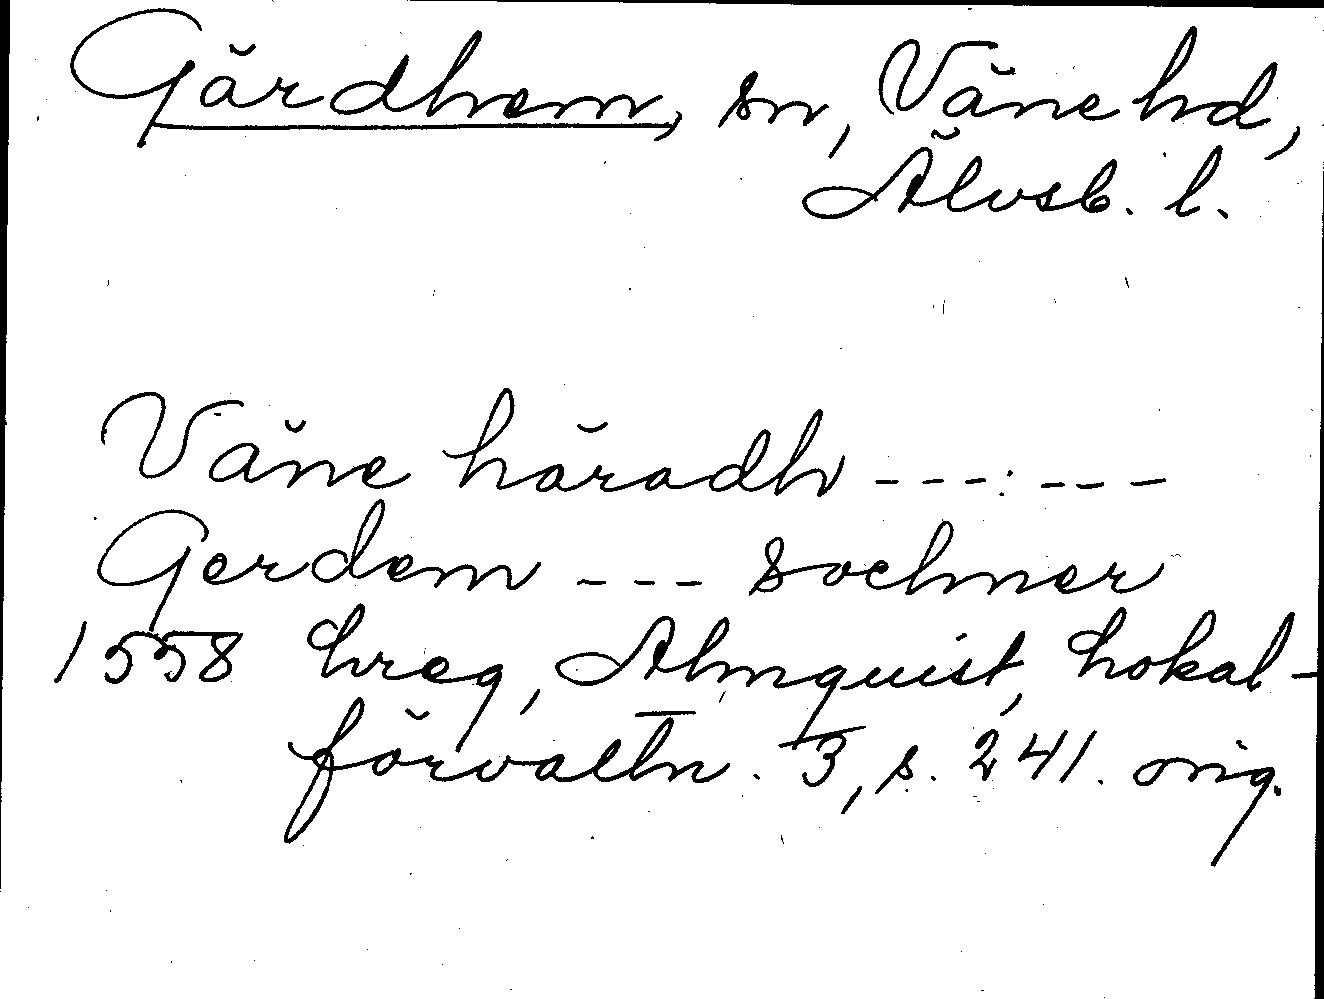 Gärdhem, sn, Väne hd,
Älvsb. l.
Väne häradh ---:---
Gerdem --- sochner
1558 hreg, Almquist, Lokal-
förvaltn. 3, s. 241. orig.